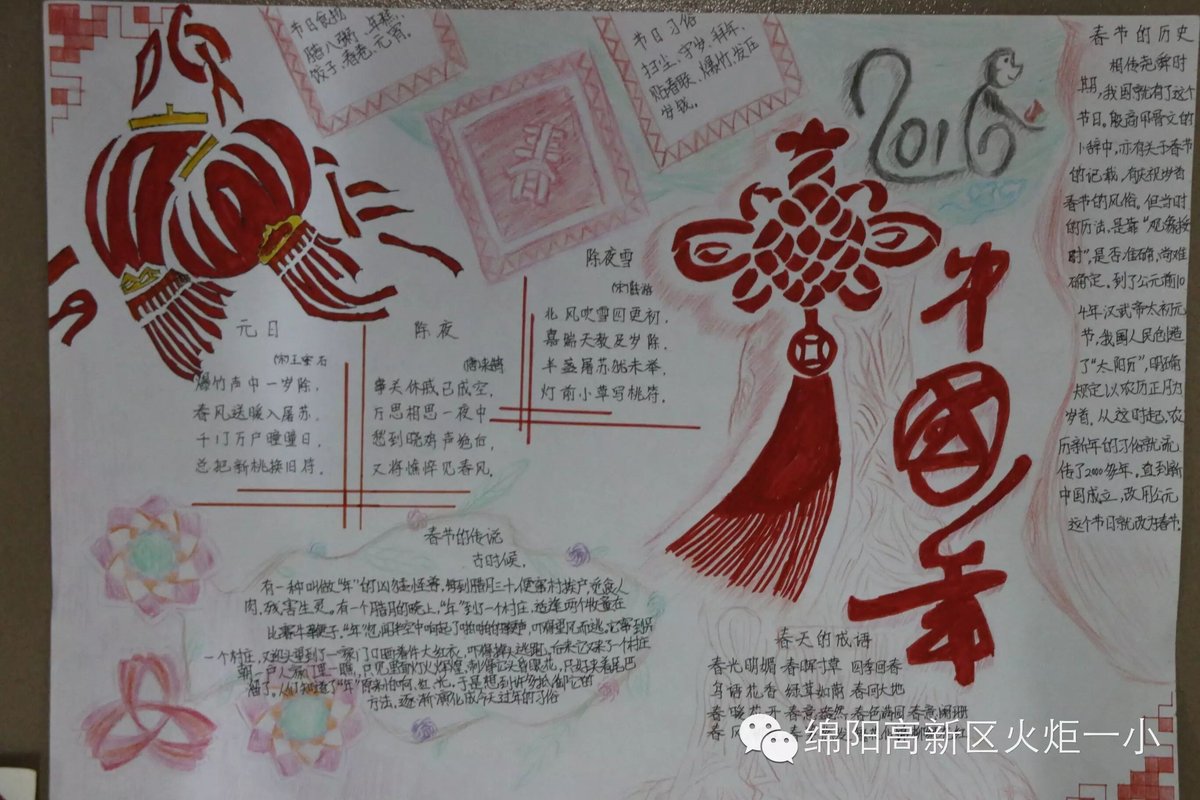 节日食物
腊八粥、年糕、
饺子、春卷、元宵。
节日习俗
扫尘、守岁、拜年、
贴春联、爆竹、发压
岁钱。
春
2016
中國年
春节的历史
相传尧舜时
期,我国就有了这个
节日。殷商甲骨文的
卜辞中,亦有关于春节
的记载,有庆祝岁首
春节的风俗。但当时
的历法,是靠“观象授
时”,是否准确,尚难
确定。到了公元前10
4年汉武帝太初元
节,我国人民创造
了“太阳历”,明确
规定以农历正月为
岁首,从这时起,农
历新年的习俗就流
传了2000多年。直到新
中国成立,改用公元
这个节日就改为春节.
元日
(宋)王安石
爆竹声中一岁除,
春风送暖入屠苏.
千门万户曈曈日,
总把新桃换旧符.
除夜
(唐)来鹄
事关休戚已成空,
万思相思一夜中
愁到晓鸡声绝后,
又将憔悴见春风。
除夜雪
(宋)陆游
北风吹雪四更初,
嘉瑞天教及岁除.
半盏屠苏犹未举,
灯前小草写桃符.
春节的传说
古时候,
有一种叫做“年”的凶猛怪兽,每到腊月三十,便窜村挨户,觅食人
肉,残害生灵。有一个腊月的晚上,“年”到了一个村庄,适逢两个牧童在
比赛牛鞭子.“年”忽闻半空中响起了啪啪的鞭声,吓得望风而逃。它窜到另
一个村庄,又迎头望到了一家门口晒着件大红衣,吓得掉头逃跑。后来它又来了一个村庄
朝一户人家门里一瞧,只见里面灯火辉煌,刺得它头昏眼花,只好夹着尾巴
溜了。人们知道了“年”原来怕响、红、光,于是想到许多抵御它的
方法,逐渐演化成今天过年的习俗
春天的成语
春光明媚 春晖寸草 四季回春
鸟语花香 绿草如茵 春回大地
春暖花开 春意盎然 春色满园 春意阑珊
春风
绵阳高新区火炬一小